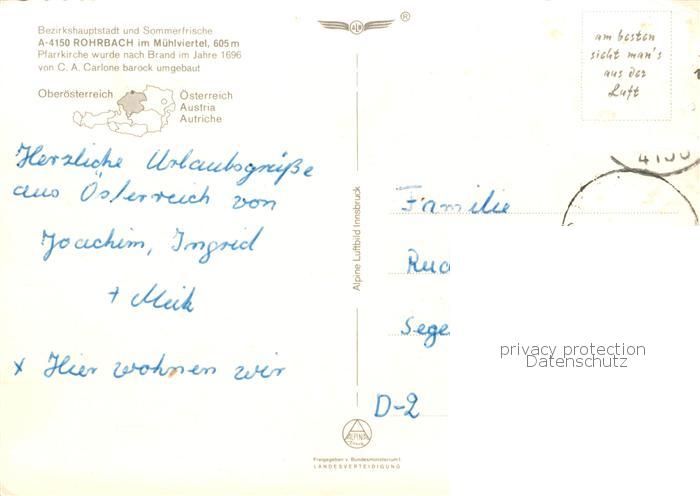 Bezirkshauptstadt und Sommerfrische
A-4150 ROHRBACH im Mühlviertel, 605 m
Pfarrkirche wurde nach Brand im Jahre 1696
von C. A. Carlone barock umgebaut
Oberösterreich
Österreich
Austria
Autriche
Herzliche Urlaubsgrüße
aus Österreich von
Joachim, Ingrid
+ Meik
x Hier wohnen wir
®
Alpine Luftbild Innsbruck
ALPINE
Freigegeben v. Bundesministerium f.
LANDESVERTEIDIGUNG
am besten
sieht man's
aus der
Luft
4150
Familie
Rud
Sege
D-2
privacy protection
Datenschutz